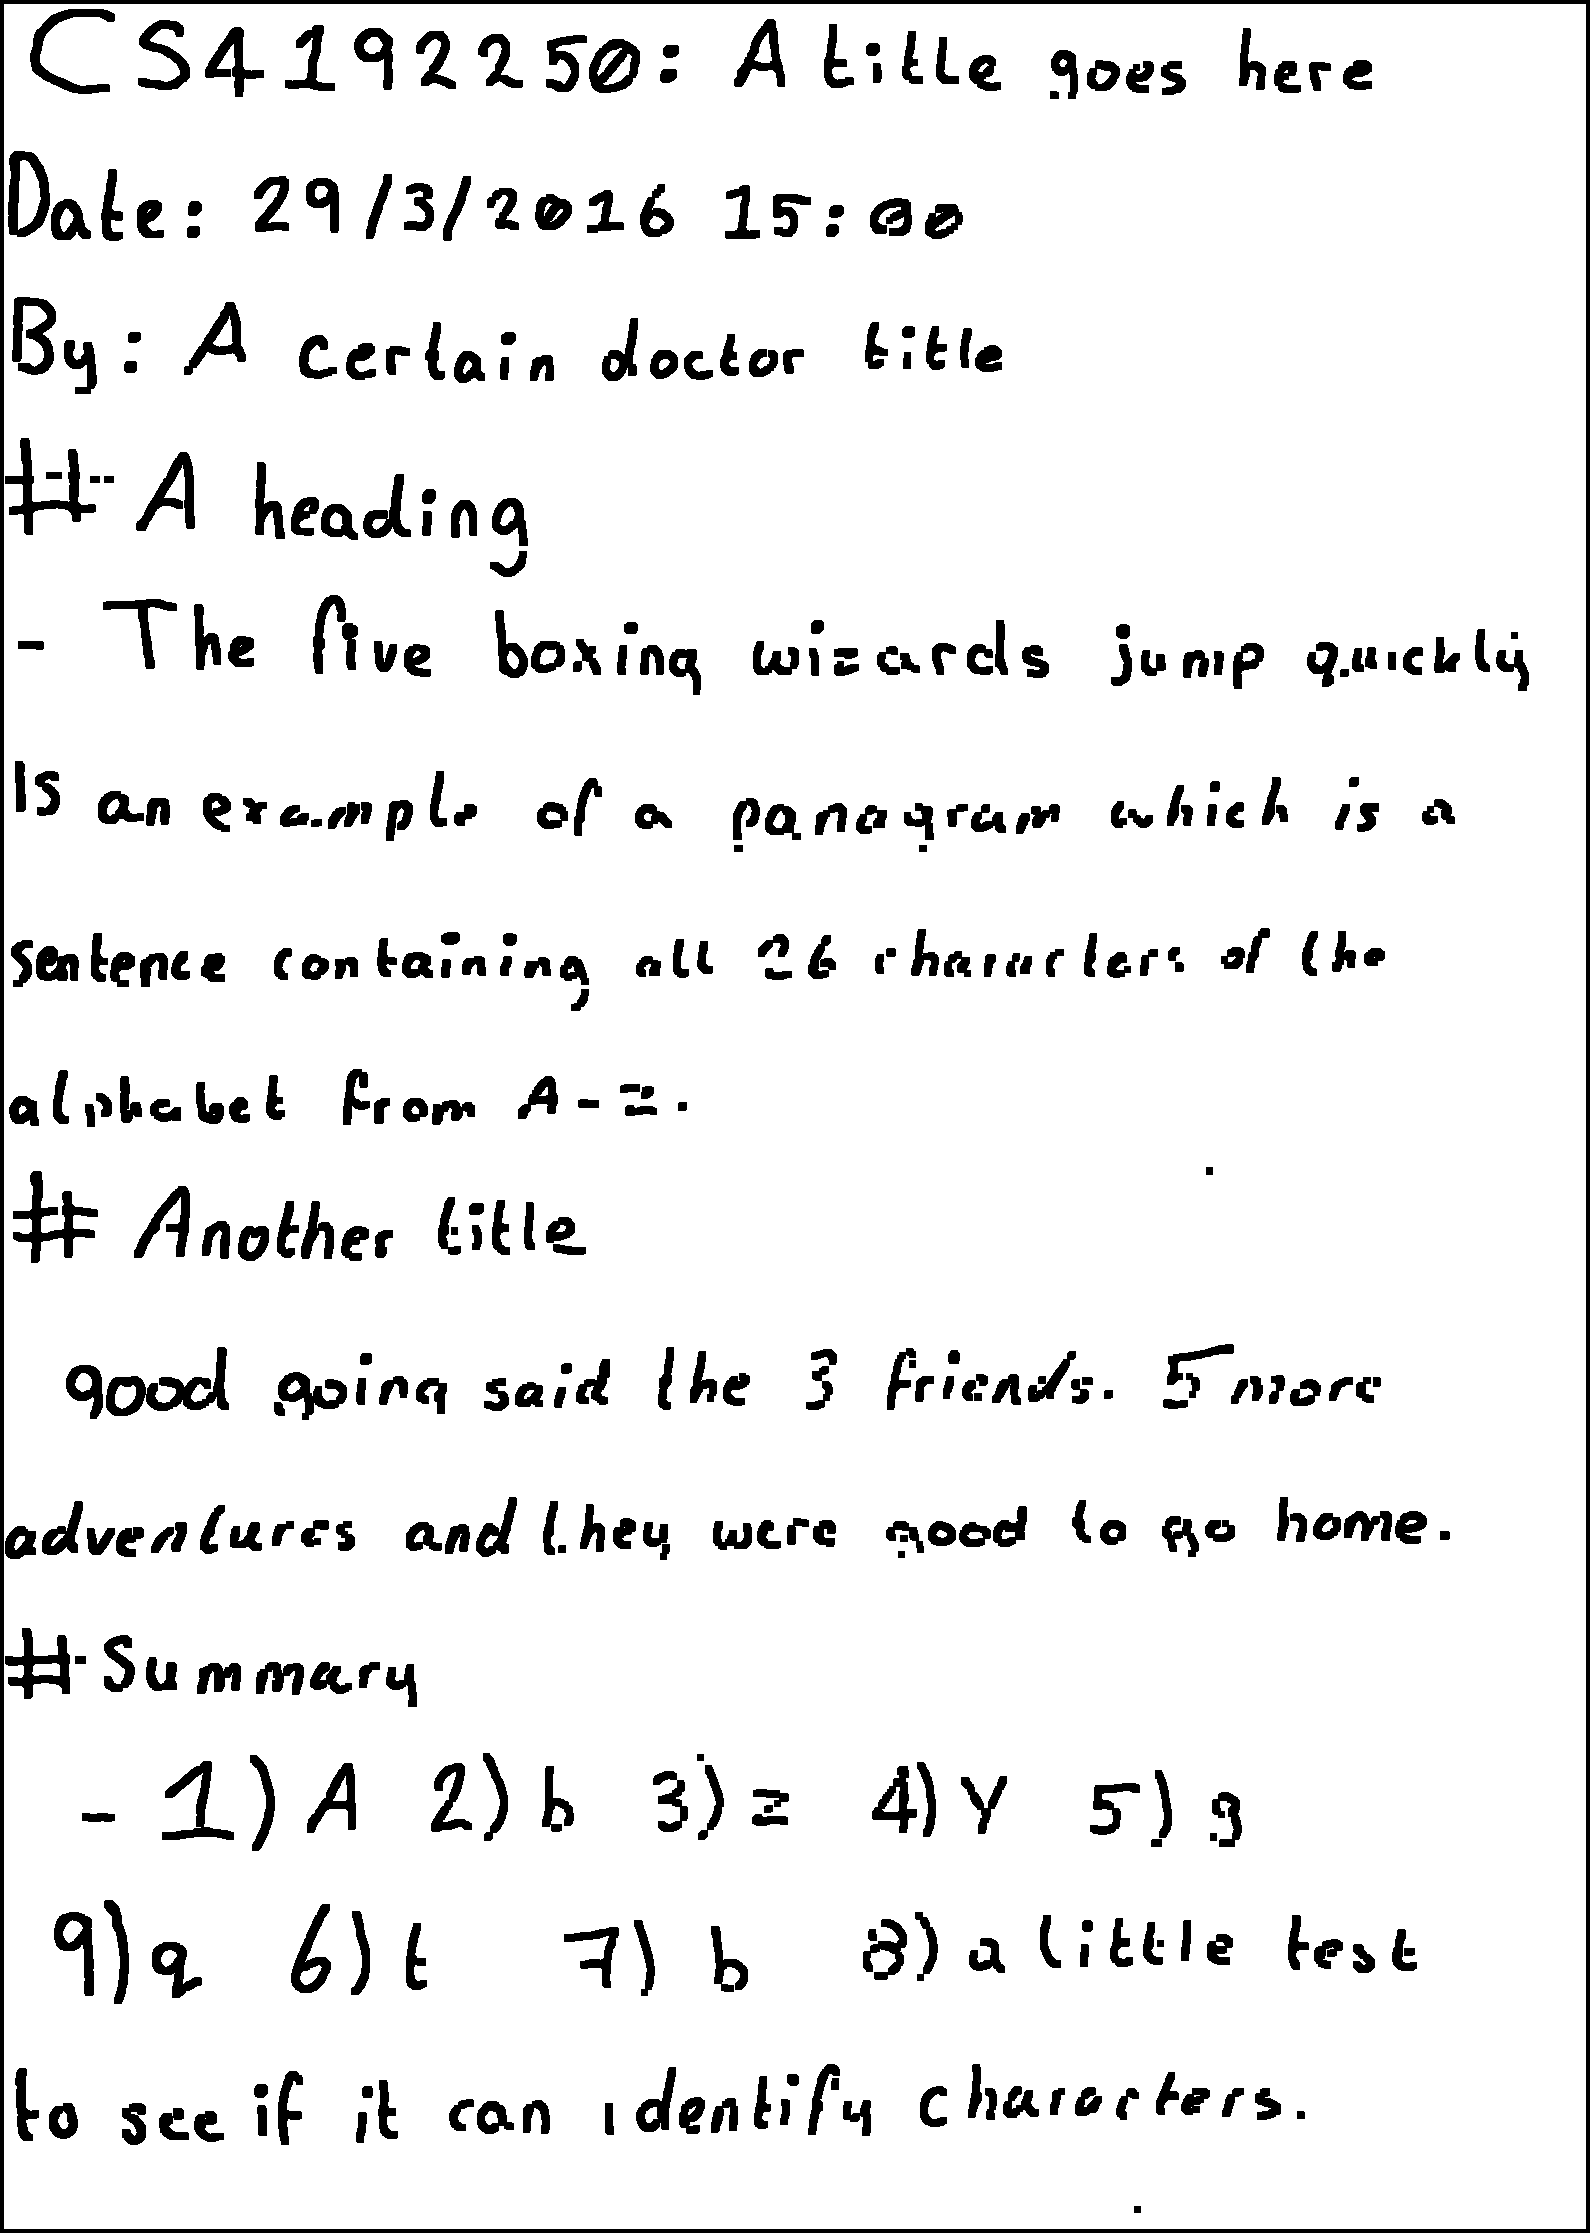 CS4192250: A title goes here
Date: 29/3/2016 15:00
By: A certain doctor title
# A heading
- The five boxing wizards jump quickly
Is an example of a panagram which is a
sentence containing all 26 characters of the
alphabet from A-z.
# Another title
good going said the 3 friends. 5 more
adventures and they were good to go home.
# Summary
- 1) A 2) b 3) z 4) Y 5) g
9) q 6) t 7) b 8) a little test
to see if it can identify characters.